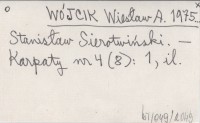 WÓJCIK Wiesław A. 1975.
Stanisław Sierotwiński. —
Karpaty nr 4 (8): 1, il.